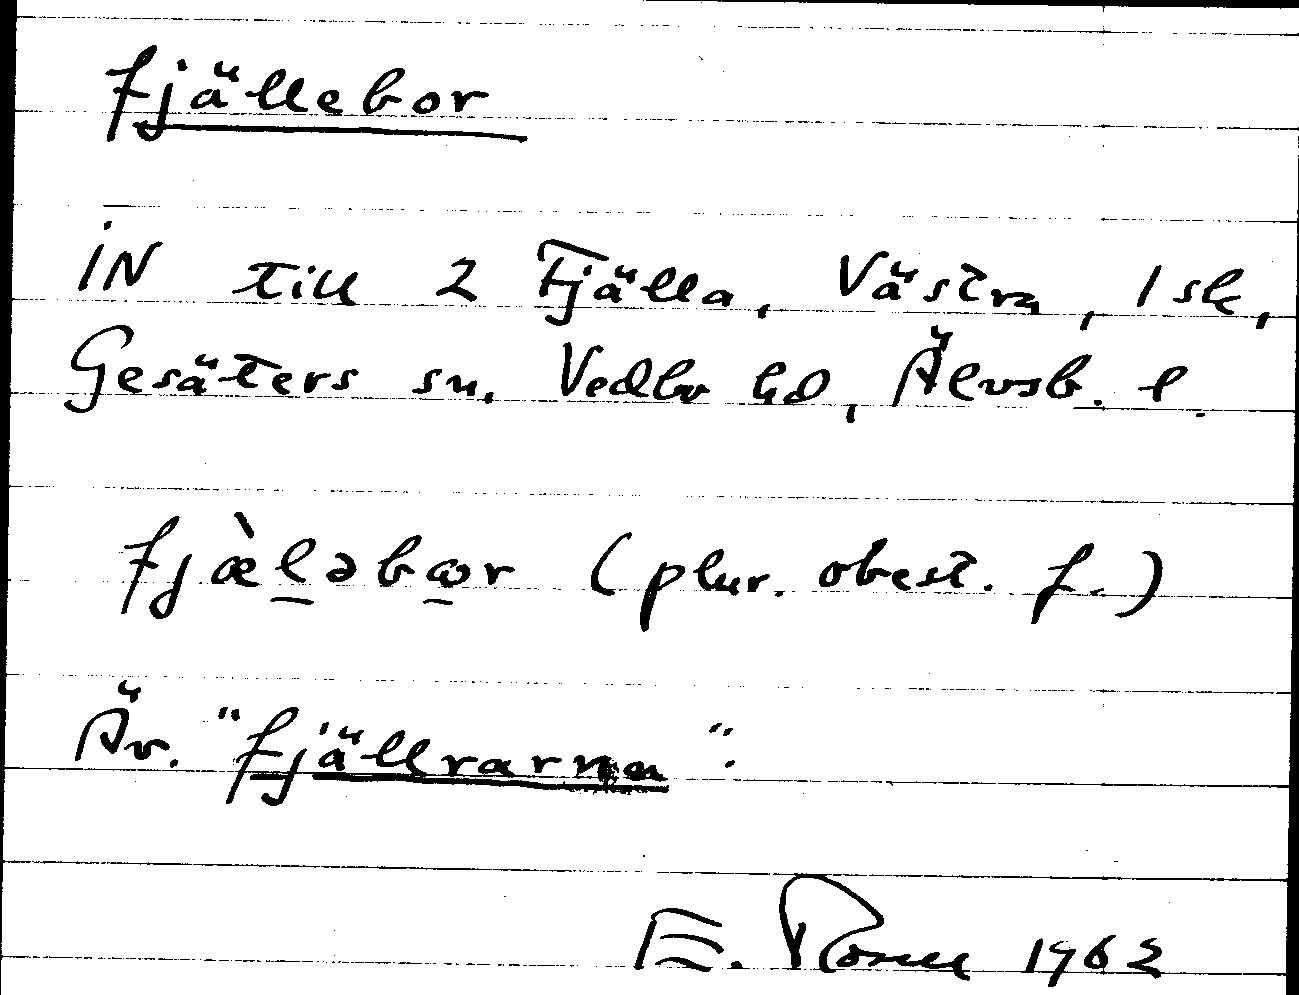 fjällebor
IN till 2 Fjälla, Västra, 1 sk,
Gesäters sn, Vedbo hd, Älvsb. l.
fjæ̀l̠əbꞷ̠r (plur. obest. f.)
Äv. "fjällrarna".
E. 1962